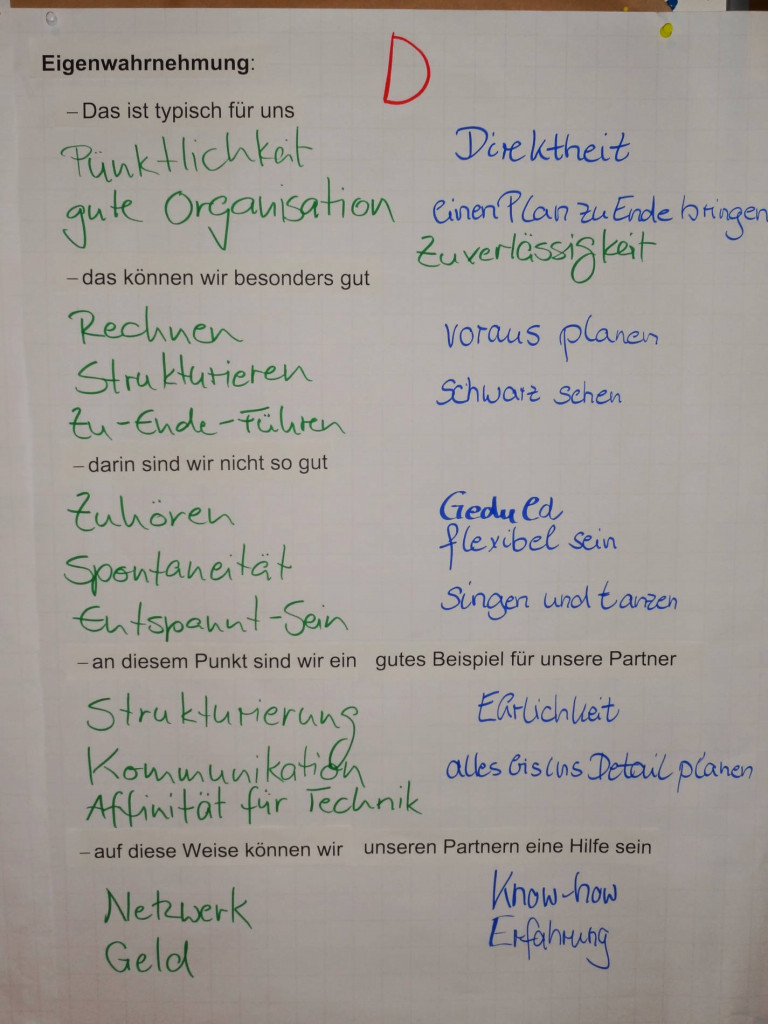 Eigenwahrnehmung:
D
– Das ist typisch für uns
Pünktlichkeit
Direktheit
gute Organisation
einen Plan zu Ende bringen
Zuverlässigkeit
– das können wir besonders gut
Rechnen
voraus planen
Strukturieren
schwarz sehen
Zu-Ende-Führen
– darin sind wir nicht so gut
Zuhören
Geduld
flexibel sein
Spontaneität
Singen und tanzen
Entspannt-Sein
– an diesem Punkt sind wir ein gutes Beispiel für unsere Partner
Strukturierung
Ehrlichkeit
Kommunikation
alles bis ins Detail planen
Affinität für Technik
– auf diese Weise können wir unseren Partnern eine Hilfe sein
Netzwerk
Know-how
Erfahrung
Geld